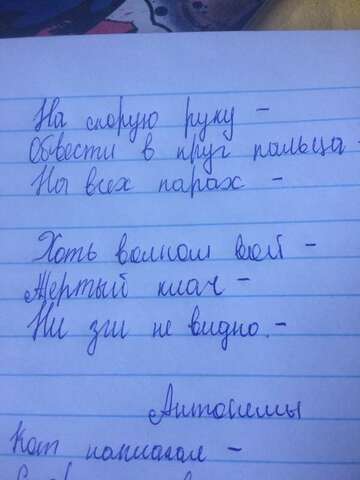 На скорую руку -
Обвести в круг пальца -
На всех парах -
Хоть волком вой -
Жертый клач -
Ни зги не видно. -
Антонемы
Кот наплакал -